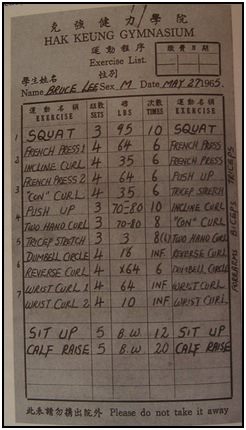 克強健力學院
HAK KEUNG GYMNASIUM
運動程序
Exercise List.
繳費日期
學生姓名 性別
Name BRUCE LEE Sex M Date MAY 27 1965.
運動名稱 EXERCISE 組數 SETS 磅 LBS 次數 TIMES 運動名稱 EXERCISE
1 SQUAT 3 95 10 SQUAT
FRENCH PRESS 1 4 64 6 FRENCH PRESS
2 INCLINE CURL 4 35 6 FRENCH PRESS
FRENCH PRESS 2 4 64 6 PUSH UP
3 "CON" CURL 4 35 6 TRICEP STRETCH
4 PUSH UP 3 70-80 10 INCLINE CURL
TWO HAND CURL 3 70-80 8 "CON" CURL
5 TRICEP STRETCH 3 3 TWO HAND CURL
6 DUMBELL CIRCLE 4 16 INF REVERSE CURL
REVERSE CURL 4 64 6 DUMBELL CIRCLE
7 WRIST CURL 1 4 64 INF WRIST CURL
WRIST CURL 2 4 10 INF WRIST CURL
SIT UP 5 B.W. 12 SIT UP
CALF RAISE 5 B.W 20 CALF RAISE
TRICEPS
BICEPS
FOREARMS
此表請勿攜出院外 Please do not take it away